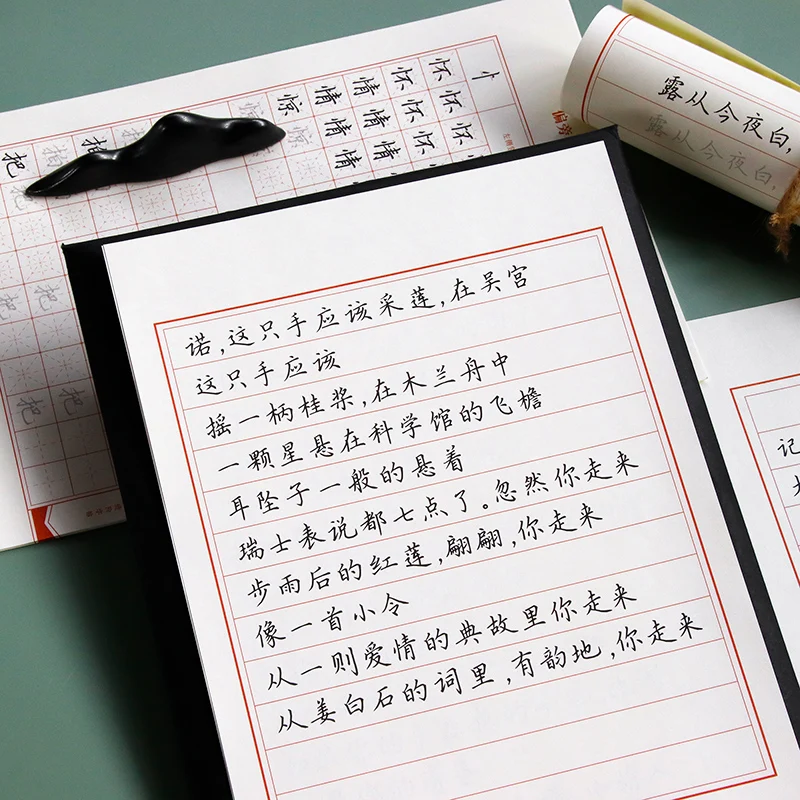 诺,这只手应该采莲,在吴宫
这只手应该
摇一柄桂桨,在木兰舟中
一颗星悬在科学馆的飞檐
耳坠子一般的悬着
瑞士表说都七点了。忽然你走来
步雨后的红莲,翩翩,你走来
像一首小令
从一则爱情的典故里你走来
从姜白石的词里,有韵地,你走来
露从今夜白,
露从今夜白,
忄 怀 怀 情 情 惊
怀 怀 情 情
怀 怀 情 情
抱
把
把
把
把
记